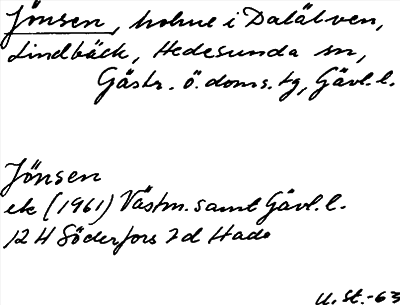 Jönsen, holme i Dalälven,
Lindbäck, Hedesunda sn,
Gästr. ö. doms.tg, Gävl. l.
Jönsen
ek (1961) Västm. samt Gävl. l.
12 H Söderfors 7 d Hade
U. St. -63